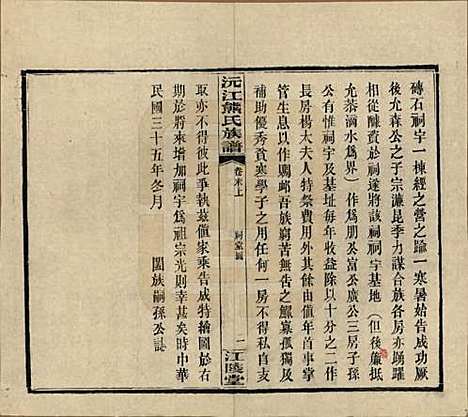 磚石祠宇一棟經之營之踰一寒暑始告成功厥
後允森公之子宗濂昆季力謀合族各房亦踴躍
相從醵資於是祠遂將該祠祠宇基地（但後簷抵
允恭滴水爲界）作爲朋公富公廣公三房子孫
公有惟祠宇及基址每年收益除以十分之二作
長房楊大夫人特祭費用外餘槪歸値年首事掌
管生息以作賙卹吾族窮苦無告之鰥寡孤獨及
補助優秀貧寒學子之用任何一房不得私自貪
沅江熊氏族譜
卷末上
祠堂圖
二
江陵堂
取亦不得彼此爭執茲値家乘告成特繪圖於右
於將來增加祠宇爲祖宗光則幸甚矣時中華
民國三十五年冬月
闔族嗣孫公誌